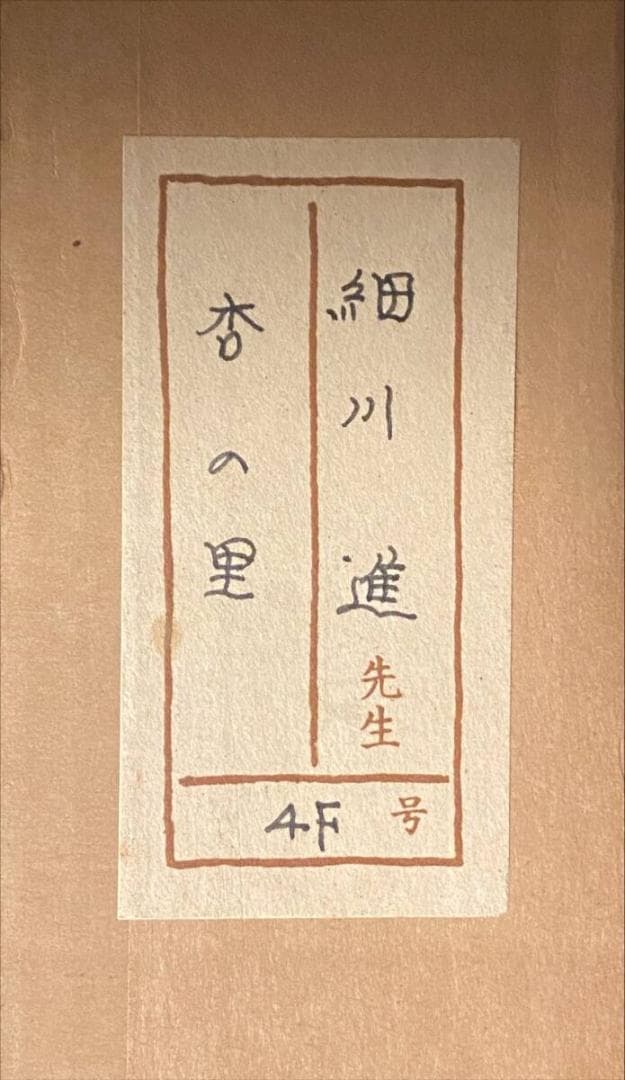 細川進先生
杏の里
4F号